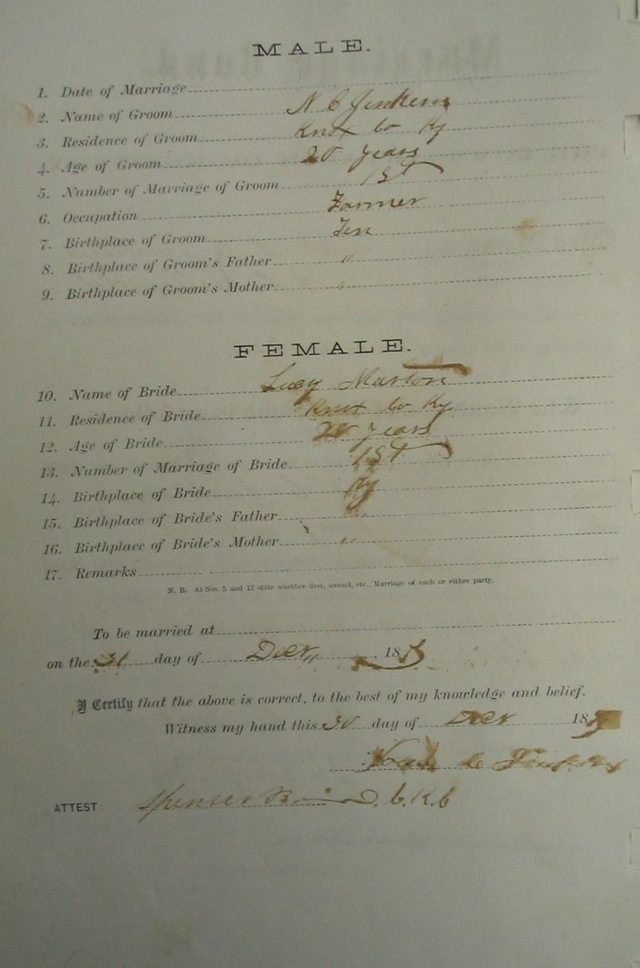 MALE.
1. Date of Marriage
2. Name of Groom N C Jenkins
3. Residence of Groom Knox Co Ky
4. Age of Groom 20 years
5. Number of Marriage of Groom 1st
6. Occupation Farmer
7. Birthplace of Groom Ten
8. Birthplace of Groom's Father "
9. Birthplace of Groom's Mother "
FEMALE.
10. Name of Bride Lucy Marton
11. Residence of Bride Knox Co Ky
12. Age of Bride 20 years
13. Number of Marriage of Bride 1st
14. Birthplace of Bride Ky
15. Birthplace of Bride's Father "
16. Birthplace of Bride's Mother "
17. Remarks
N. B. At Nos. 5 and 13 state whether first, second, etc., Marriage of each or either party.
To be married at
on the 31 day of Decr, 187
I Certify that the above is correct, to the best of my knowledge and belief.
Witness my hand this 30 day of Decr 187
C Jenkins
ATTEST Spencer D.C.K.C